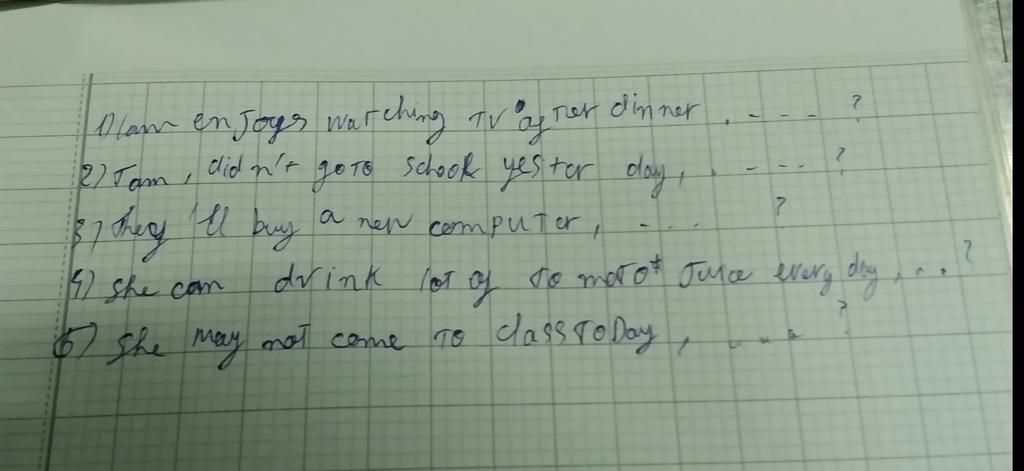 1) Iam enjoys watching TV after dinner, - - - - ?
2) Tam, didn't go to school yester day, . - - - ?
3) they 'll buy a new computer, - . . . ?
4) she can drink lot of to mato Juice every day, . . ?
5) she may not come to class ToDay, . . . ?